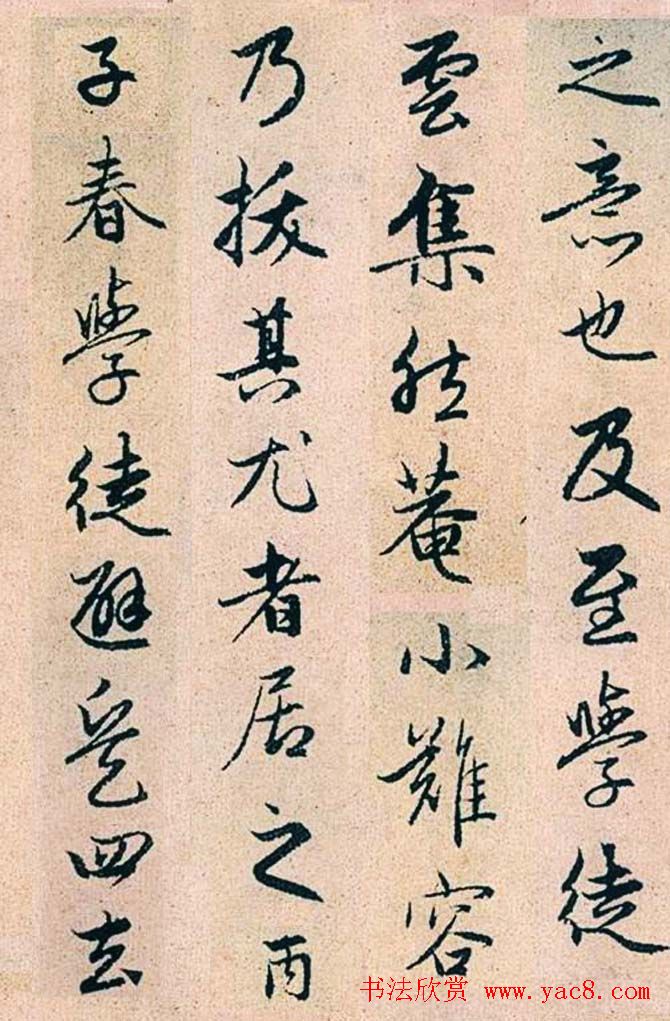 之意也及至學徒
雲集然菴小難容
乃拔其尤者居之丙
子春學徒避亂四去
书法欣赏 www.yac8.com